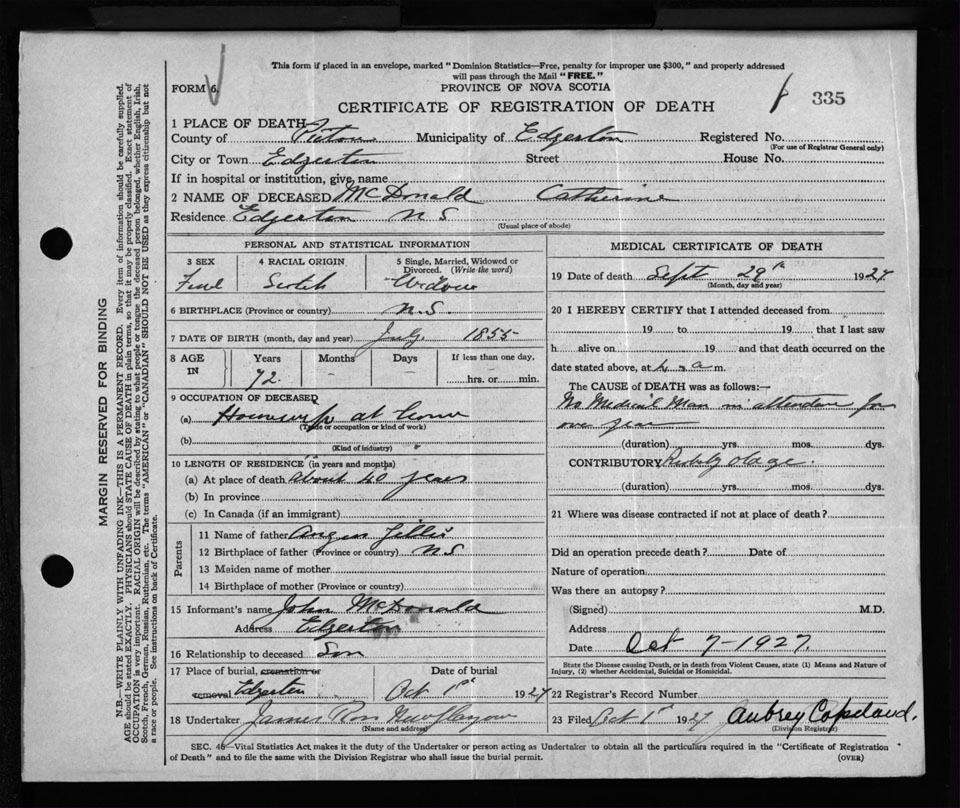 This form if placed in an envelope, marked "Dominion Statistics—Free, penalty for improper use $300," and properly addressed
will pass through the Mail "FREE."
FORM 6.
PROVINCE OF NOVA SCOTIA
CERTIFICATE OF REGISTRATION OF DEATH
335
1 PLACE OF DEATH
County of Pictou Municipality of Edgerton Registered No.
(For use of Registrar General only)
City or Town Edgerton Street House No.
If in hospital or institution, give name
2 NAME OF DECEASED McDonald Catherine
Residence Edgerton N S
(Usual place of abode)
PERSONAL AND STATISTICAL INFORMATION
3 SEX 4 RACIAL ORIGIN 5 Single, Married, Widowed or Divorced. (Write the word)
Female Scotch Widow
6 BIRTHPLACE (Province or country) N.S.
7 DATE OF BIRTH (month, day and year) July 1855
8 AGE IN Years Months Days If less than one day,
72 - - hrs. or min.
9 OCCUPATION OF DECEASED
(a) Housewife at home
(Trade or occupation or kind of work)
(b)
(Kind of industry)
10 LENGTH OF RESIDENCE (in years and months)
(a) At place of death about 40 years
(b) In province
(c) In Canada (if an immigrant)
Parents
11 Name of father Angus Gillis
12 Birthplace of father (Province or country) N S
13 Maiden name of mother
14 Birthplace of mother (Province or country)
15 Informant's name John McDonald
Address Edgerton
16 Relationship to deceased Son
17 Place of burial, cremation or removal Edgerton
Date of burial Oct 1st 1927
18 Undertaker James Ross New Glasgow
(Name and address)
MEDICAL CERTIFICATE OF DEATH
19 Date of death Sept 29th 1927
(Month, day and year)
20 I HEREBY CERTIFY that I attended deceased from
19 to 19 that I last saw
h alive on 19 and that death occurred on the
date stated above, at 4 a m.
The CAUSE of DEATH was as follows:—
No Medical Man in attendance for
over year
(duration) yrs. mos. dys.
CONTRIBUTORY old age.
(duration) yrs. mos. dys.
21 Where was disease contracted if not at place of death?
Did an operation precede death? Date of
Nature of operation
Was there an autopsy?
(Signed) M.D.
Address
Date Oct 7-1927.
State the Disease causing Death, or in death from Violent Causes, state (1) Means and Nature of
Injury, (2) whether Accidental, Suicidal or Homicidal.
22 Registrar's Record Number
23 Filed Oct 1st 1927 Aubrey Copeland.
(Division Registrar)
SEC. 46—Vital Statistics Act, makes it the duty of the Undertaker or person acting as Undertaker to obtain all the particulars required in the "Certificate of Registration
of Death" and to file the same with the Division Registrar who shall issue the burial permit.
(OVER)
MARGIN RESERVED FOR BINDING
N.B.—WRITE PLAINLY WITH UNFADING INK—THIS IS A PERMANENT RECORD. Every item of information should be carefully supplied.
AGE should be stated EXACTLY. PHYSICIANS should STATE CAUSE OF DEATH in plain terms, so that it may be properly classified. Exact statement of
OCCUPATION is very important. RACIAL ORIGIN will be described by stating to what people or tongue the deceased person belonged, whether English, Irish,
Scotch, French, German, Russian, Ruthenian, etc. The terms "AMERICAN" or "CANADIAN" SHOULD NOT BE USED as they express citizenship but not
a race or people. See instructions on back of Certificate.